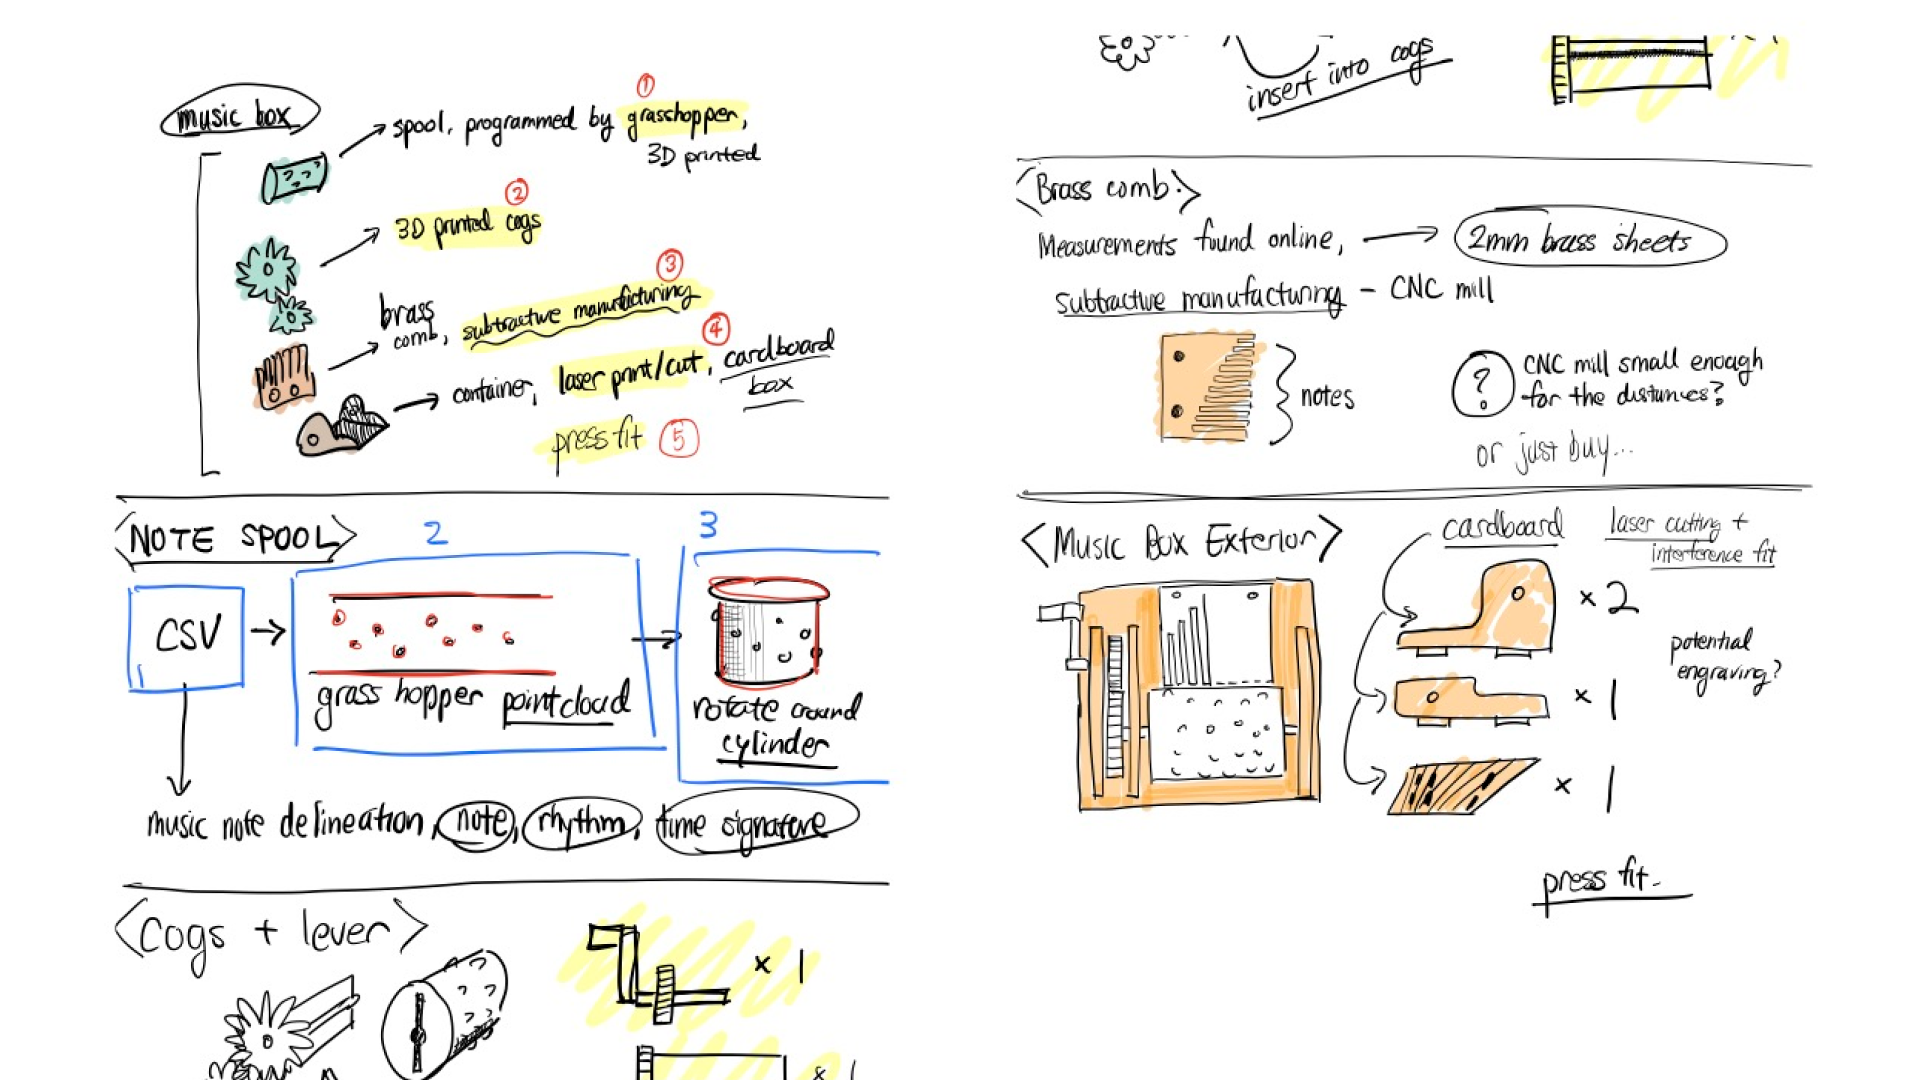 music box
①
spool, programmed by grasshopper,
3D printed
②
3D printed cogs
③
brass
comb, subtractive manufacturing
④
container, laser print/cut, cardboard
box
press fit ⑤
<NOTE SPOOL>
2
3
CSV
grasshopper pointcloud
rotate around
cylinder
music note delineation, note, rhythm, time signature
<Cogs + lever>
x 1
x 1
insert into cogs
<Brass comb.>
Measurements found online, 2mm brass sheets
subtractive manufacturing - CNC mill
notes
? CNC mill small enough
for the distances?
or just buy...
<Music Box Exterior>
cardboard
laser cutting +
interference fit
x 2
potential
engraving?
x 1
x 1
press fit.